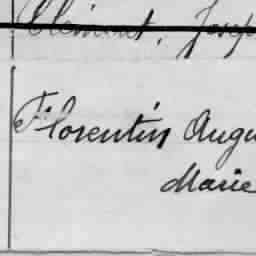 Clément, Josep
Florentin Augu
Marie